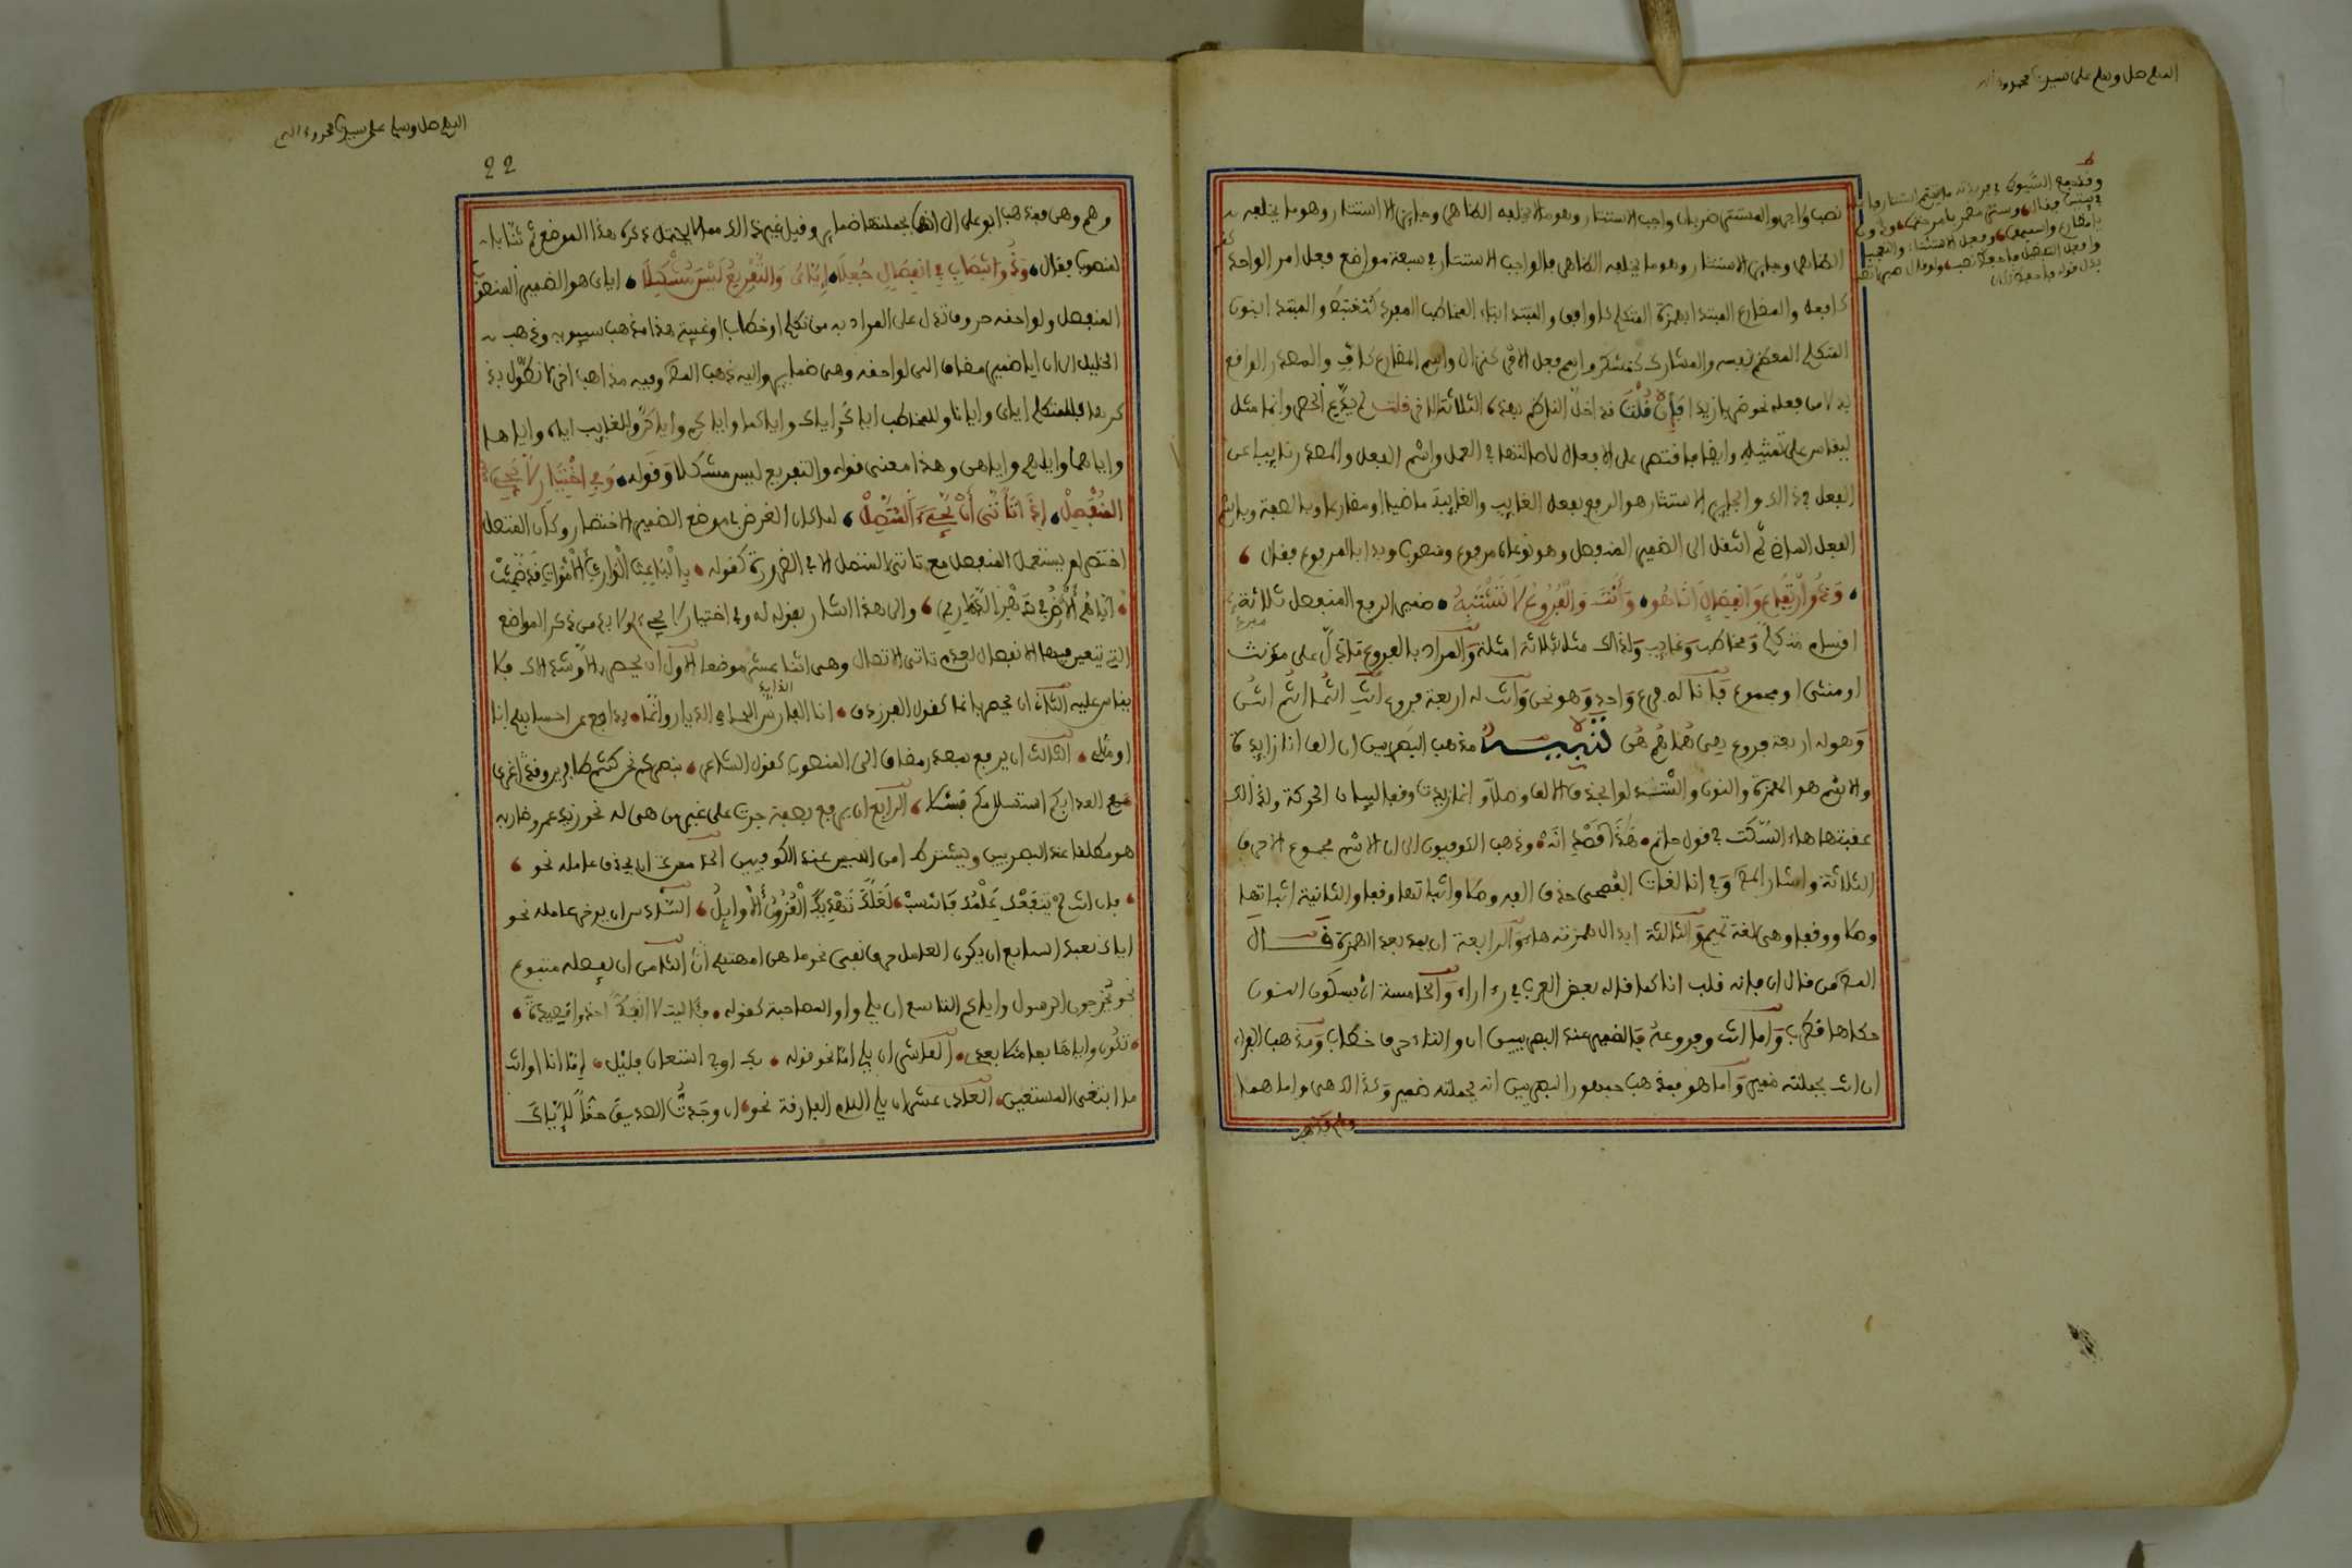 اللهم صل وسلم على سيدنا محمد وءاله
نصب ولا جر والمستتر ضربان واجب الاستتار وهو ما لا يخلفه الظاهر وجايز الاستتار وهو ما يخلفه
الظاهر وجايز الاستتار وهو ما يخلفه الظاهر فالواجب الاستتار في سبعة مواضع فعل امر الواحد
كافعل والمضارع المبتدا بهمزة المتكلم كاوافق والمبتدا بتاء المخاطب المفرد كنغتبط والمبتدا بنون
المتكلم المعظم نفسه والمشارك كنشكر واسم فعل الامر كنزال واسم المضارع كاف والمصدر الواقع
بدلا من فعله نحو ضربا زيدا فإن قلت قد اخل الناظم بهذه الثلاثة الاخر قلت لم يدع الحصر وانما مثل
ليقاس على تمثيله وايضا فاقتصر على الافعال لاصالتها في العمل واسم الفعل والمصدر نايب عن
الفعل في ذالك والجايز الاستتار هو المرفوع بفعل الغايب والغايبة ماضيا ومضارعا وبالصفة وباسم
الفعل الماضي ثم انتقل الى الضمير المنفصل وهو نوعان مرفوع ومنصوب وبدا بالمرفوع فقال
وَذُو ارْتِفَاعٍ وَانْفِصَالٍ أَنَا هُو وَأَنْتَ وَالْفُرُوعُ لَا تَشْتَبِهُ ضمير الرفع المنفصل ثلاثة
اقسام متكلم ومخاطب وغايب ولذالك مثل بثلاثة امثلة والمراد بالفروع ما دل على مؤنث
او مثنى او مجموع فانا له فرع واحد وهو نحن وانت له اربعة فروع انت انتما انتم انتن
وهو له اربعة فروع هي هما هم هن تنبيه مذهب البصريين ان الف انا زايدة
والاسم هو الهمزة والنون واستدلوا بحذف الالف وصلا وانما زيدت وقفا لبيان الحركة ولذالك
عقبتها هاء السكت في قول حاتم هذا فصدي انه وذهب الكوفيون الى ان الاسم مجموع الاحرف
الثلاثة واشار المص وفي انا لغات الفصحى حذف الفه وصلا واثباتها وقفا والثانية اثباتها
وصلا ووقفا وهي لغة تميم والثالثة ابدال همزته هاء والرابعة ان بمد بعد الهمزة قال
المص من قال ان فانه قلب انا كما قال بعض العرب في رءا راء والخامسة ان بسكون النون
حكاها قطرب واما انت وفروعه فالضمير عند البصريين ان والتاء حرف خطاب ومذهب الفراء
ان انت بجملته ضمير واما هو فمذهب جمهور البصريين انه بجملته ضمير وكذالك هي واما هما
اللهم صل وسلم على سيدنا محمد وءاله
22
وهم وهن فمذهب ابو علي الى انها بجملتها ضماير وقيل غير ذالك مما لا يحتمل ذكره هذا الموضع ثم ثنى بال
المنصوب فقال وَذُو انْتِصَابٍ فِي انْفِصَالٍ جُعِلَا إِيَّايَ وَالتَّفْرِيعُ لَيْسَ مُشْكِلَا اياى هو الضمير المنصوب
المنفصل ولواحقه حروف تدل على المراد به من تكلم او خطاب او غيبة هذا مذهب سيبويه وذهب
الخليل الى ان ايا ضمير مضاف الى لواحقه وهي ضماير واليه ذهب المص وفيه مذاهب اخر لا نطول بذ
كرها فللمتكلم اياى وايانا وللمخاطب اياك واياك واياكما واياكم واياكن وللغايب اياه واياها
واياهما واياهم واياهن وهذا معنى قوله والتفريع ليس مشكلا وقوله وَفِي اخْتِيَارٍ لَا يَجِيءُ
الْمُنْفَصِلْ إِذَا تَأَتَّى أَنْ يَجِيءَ الْمُتَّصِلْ لما كان الغرض بموضع الضمير الاختصار وكان المتصل
اخصر لم يستعمل المنفصل مع تاتي المتصل الا في الضرورة كقوله بالباعث الوارث الاموات قد ضمنت
اياهم الارض في دهر الدهارير والى هذا اشار بقوله وفي اختيار لا يجيء ولا بد من ذكر المواضع
التي يتعين فيها الانفصال لعدم تاتي الاتصال وهي اثنا عشر موضعا الاول ان يحصر بالا وشذ الاك فلا
يقاس عليه الثاني ان يحصر بانما كقول الفرزدق انا الذايد الحامي الذمار وانما يدافع عن احسابهم انا
او مثلي الثالث ان يرفع بمصدر مضاف الى المنصوب كقول الشاعر بنصركم نحن كنتم ظافرين وقد اغرى
العدا بكم استسلامكم فشلا الرابع ان يرفع بصفة جرت على غير من هي له نحو زيد عمرو ضاربه
هو مطلقا عند البصريين ويشترط امن اللبس عند الكوفيين الخامس ان يحذف عامله نحو
فان انت لم ينفعك علمك فانتسب لعلك تهديك القرون الاوايل السادس ان يوخر عامله نحو
اياك نعبد السابع ان يكون العامل حرف نفي نحو ما هن امهتهم الثامن ان يفصله متبوع
نحو يخرجون الرسول واياكم التاسع ان يلي واو المصاحبة كقوله فئاليت لا انفك احذو قصيدة
تكون واياها بها مثلا بعدي العاشر ان يلي اما نحو قوله بك او بي استعان فليل اما انا او انت
ما ابتغى المستعين الحادي عشر ان يلي اللام الفارقة نحو ان وجدت الصديق حقا لاياك